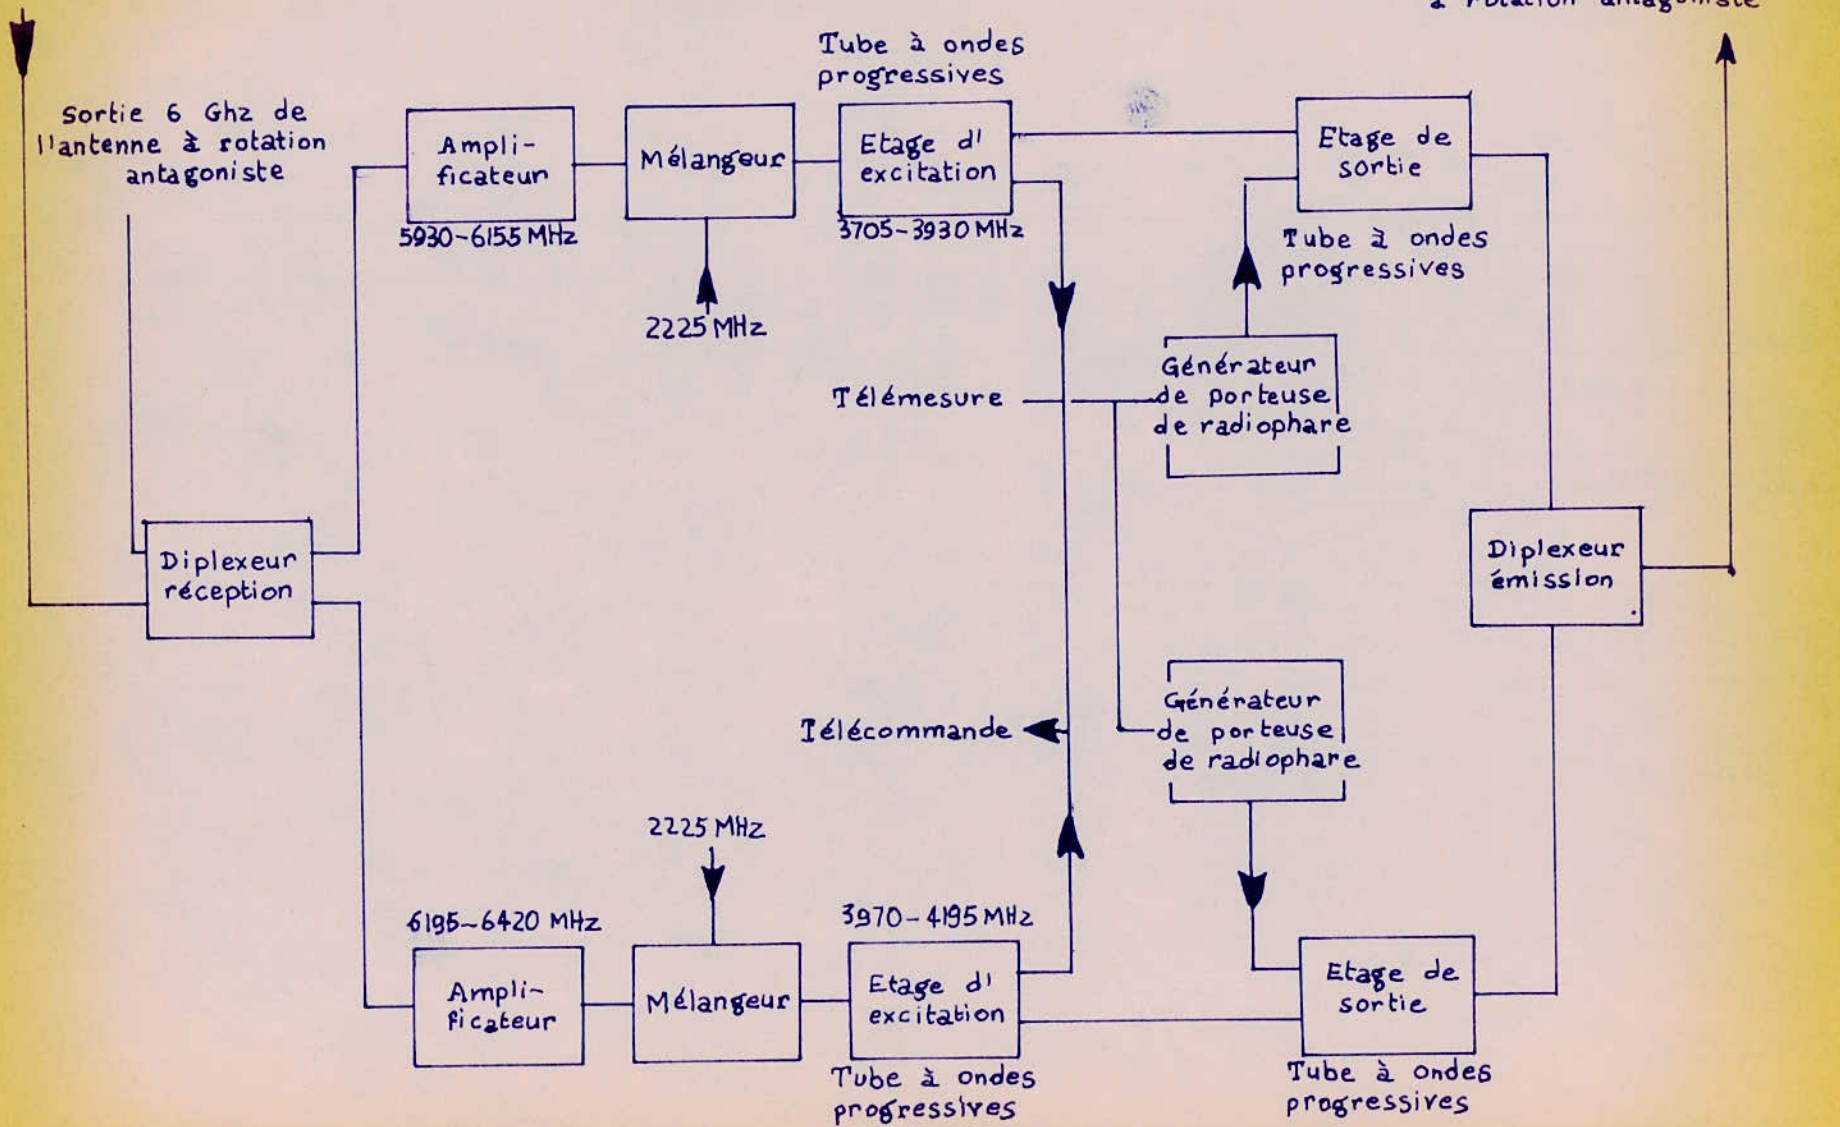 à rotation antagoniste
Tube à ondes
progressives
Sortie 6 Ghz de
l'antenne à rotation
antagoniste
Ampli-
ficateur
5930-6155 MHz
Mélangeur
2225 MHz
Etage d'
excitation
3705-3930 MHz
Etage de
sortie
Tube à ondes
progressives
Télémesure
Générateur
de porteuse
de radiophare
Diplexeur
réception
Diplexeur
émission
Télécommande
Générateur
de porteuse
de radiophare
2225 MHz
6195-6420 MHz
3970-4195 MHz
Ampli-
ficateur
Mélangeur
Etage d'
excitation
Etage de
sortie
Tube à ondes
progressives
Tube à ondes
progressives